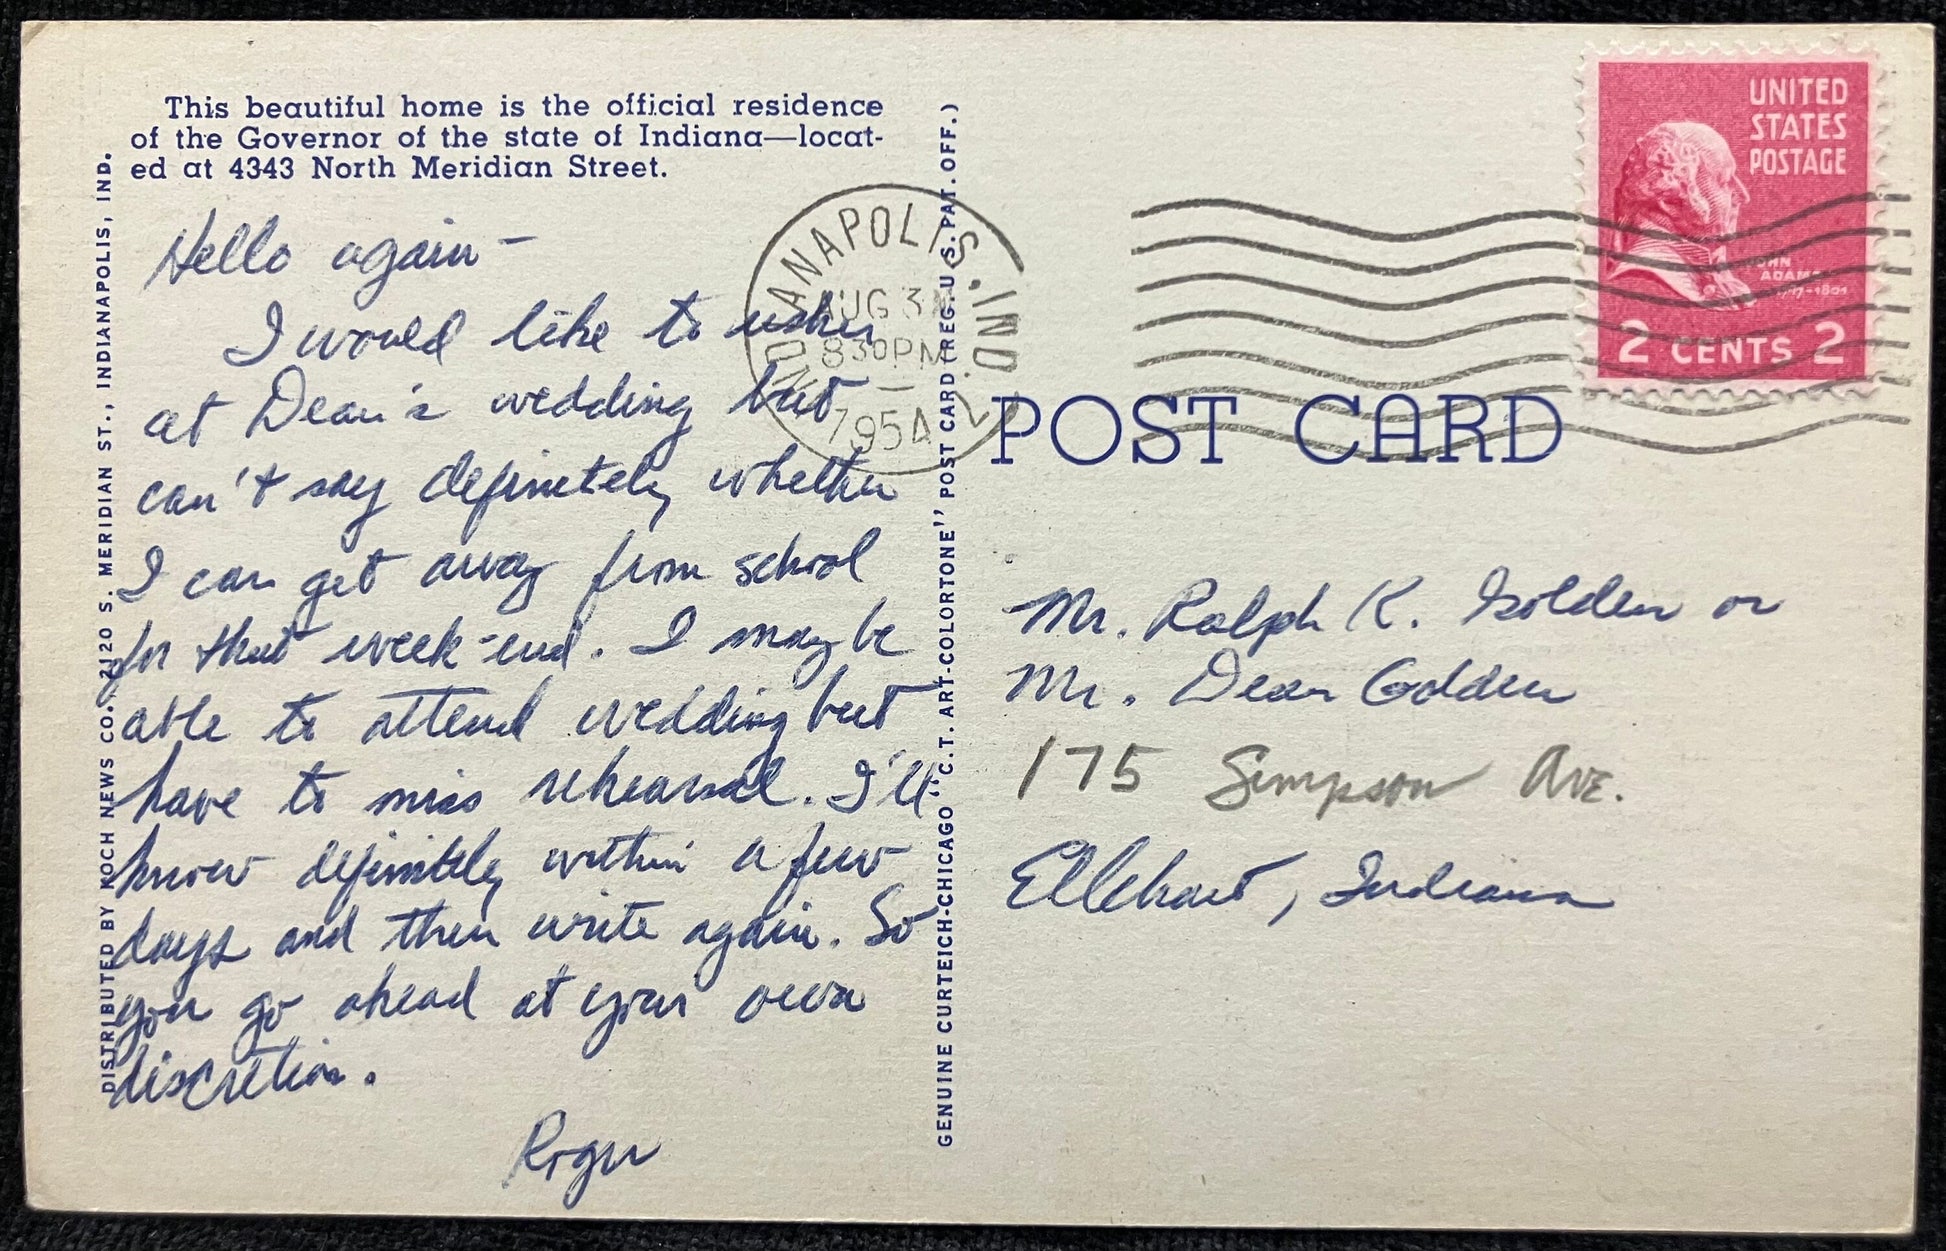 This beautiful home is the official residence
of the Governor of the state of Indiana—locat-
ed at 4343 North Meridian Street.
Hello again –
I would like to usher
at Dean's wedding but
can't say definetely whether
I can get away from school
for that week-end. I may be
able to attend wedding but
have to miss rehearsal. I'll
know definitely within a few
days and then write again. So
you go ahead at your own
discretion.
Roger
DISTRIBUTED BY KOCH NEWS CO., 2120 S. MERIDIAN ST., INDIANAPOLIS, IND.
GENUINE CURTEICH-CHICAGO "C.T. ART-COLORTONE" POST CARD (REG. U.S. PAT. OFF.)
INDIANAPOLIS, IND.
AUG 3
830 PM
1954
UNITED
STATES
POSTAGE
JOHN
ADAMS
1797-1801
2 CENTS 2
POST CARD
Mr. Ralph K. Golden or
Mr. Dean Golden
175 Simpson Ave.
Elkhart, Indiana